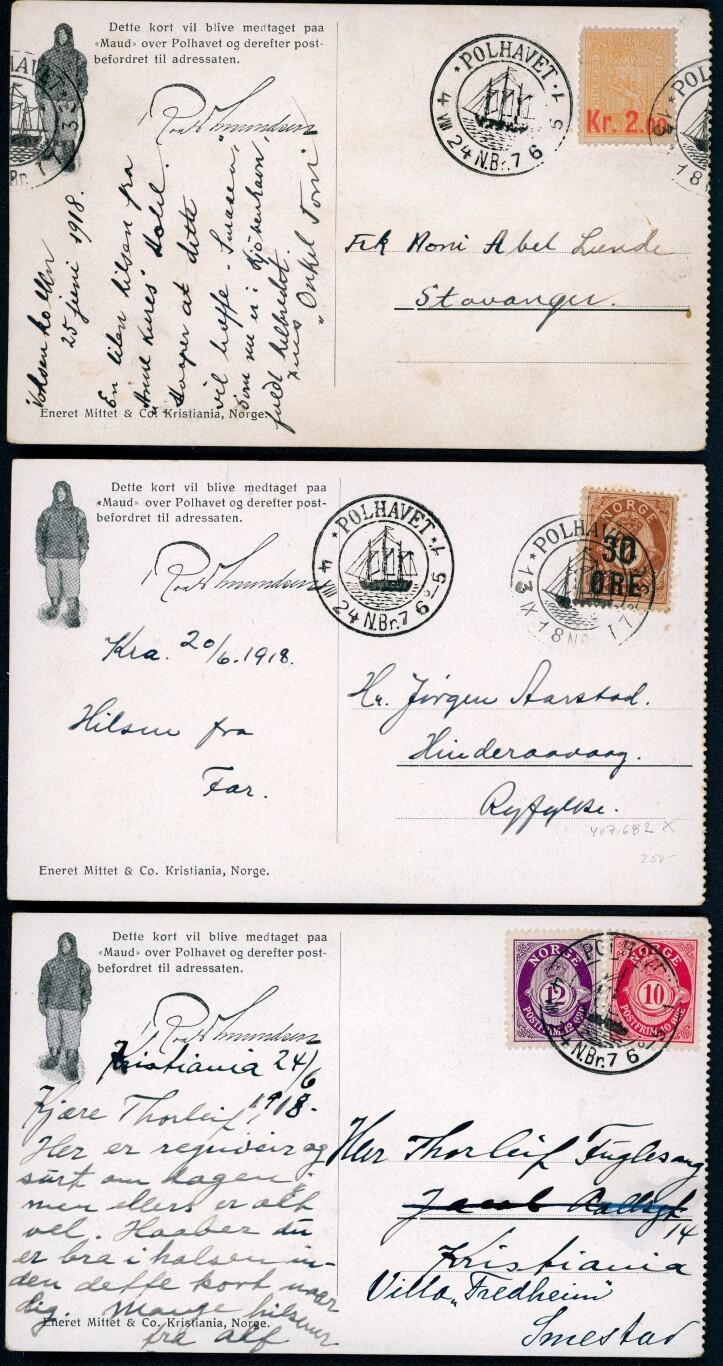 Dette kort vil blive medtaget paa
«Maud» over Polhavet og derefter post-
befordret til adressaten.
Roald Amundsen
★ POLHAVET ★
4 VIII 24 N.Br. 76°-5
Kr. 2.00
18
Voksenkollen
25 juni 1918.
En liten hilsen fra
Anne Kures' Hotel.
Haaper at dette
vil træffe "Smaaen",
som nu er i Kjøbenhavn,
fuldt helbredet.
"Onkel Toni
Frk Moni Abel Lunde
Stavanger.
Eneret Mittet & Co. Kristiania, Norge.
Dette kort vil blive medtaget paa
«Maud» over Polhavet og derefter post-
befordret til adressaten.
Roald Amundsen
★ POLHAVET ★
4 VIII 24 N.Br. 76°-5
NORGE
30
ØRE
POLHAV
13 IX 18 N
Kra. 20/6.1918.
Hilsen fra
Far.
Hr. Jørgen Aarstad.
Hinderaavaag.
Ryfylke.
407.682 X
250
Eneret Mittet & Co. Kristiania, Norge.
Dette kort vil blive medtaget paa
«Maud» over Polhavet og derefter post-
befordret til adressaten.
Roald Amundsen
NORGE
12
POSTFRIM. 12 ØRE
NORGE
10
POSTFRIM. 10 ØRE
POLHAVET
4 N.Br. 76°-5
Kristiania 24/6
1918.
Kjære Thorleif!
Her er regnveir og
surt om dagen,
men ellers er alt
vel. Haaber du
er bra i halsen in-
den dette kort naar
dig. Mange hilsener
fra Alf
Herr Thorleif Fuglesang
Jacob Aallsgt 14
Kristiania
Villa "Fredheim"
Smestad
Eneret Mittet & Co. Kristiania, Norge.